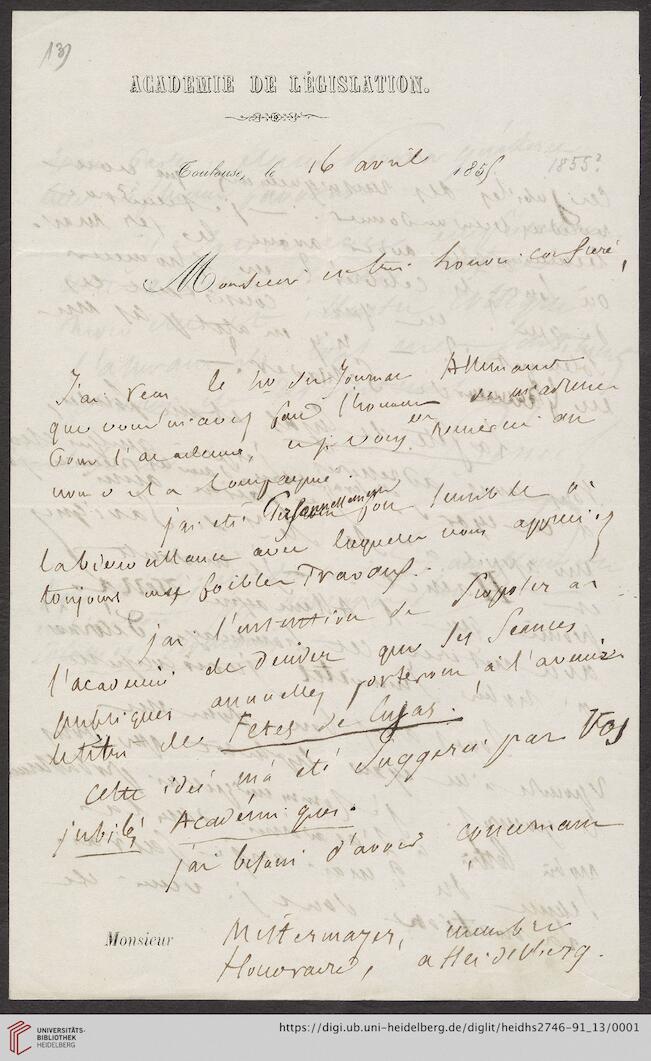 13)
ACADEMIE DE LÉGISLATION.
Toulouse, le 16 avril 1855
1855?
Monsieur et très honoré confrère,
J'ai reçu le no du Journal Allemand
que vous m'avez fait l'honneur de m'adresser
pour l'académie, et je vous en remercie au
nom de la Compagnie.
j'ai été Personnellement fort sensible à
la bienveillance avec laquelle vous appréciez
toujours mes foibles Travaux.
j'ai l'intention de proposer à
l'académie de Décider que ses Séances
publiques annuelles porteront à l'avenir
le titre de Fêtes de Cujas.
cette idée m'a été Suggérée par Vos
jubilés Académiques.
j'ai besoin d'avoir, concernant
Monsieur Mittermayer, membre
Honoraire, a Heidelberg.
UNIVERSITÄTS-
BIBLIOTHEK
HEIDELBERG
https://digi.ub.uni-heidelberg.de/diglit/heidhs2746-91_13/0001